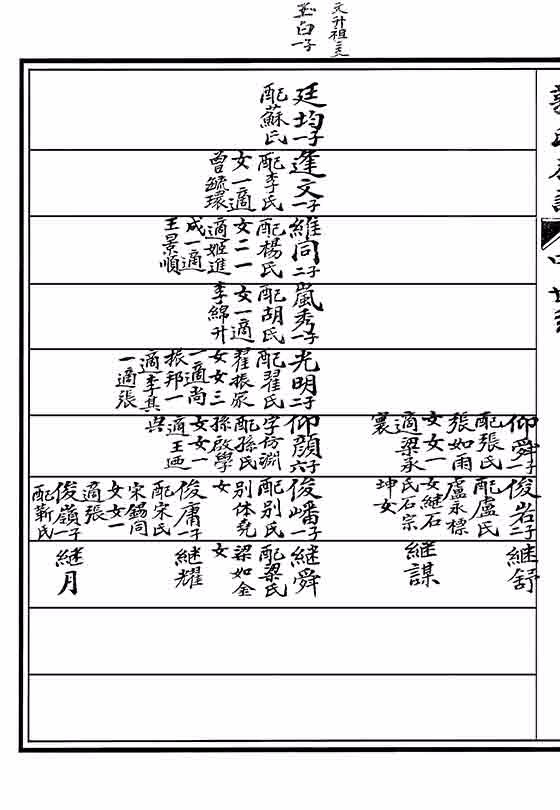 文升祖之支
至白一子
廷均一子
配蘇氏
逢文一子
配李氏
女一適
曾毓環
維同二子
配楊氏
女二一
適姬進
成一適
王景順
嵐秀一子
配胡氏
女一適
李綿升
光明二子
配翟氏
翟振家
女女三
一適尚
振邦一
適李其
一適張
仰舜二子
配張氏
張如雨
女女一
適梁永
裏
仰顏六子
字訪淵
配孫氏
孫啟學
女女一
適王迺
兵
俊岩二子
配盧氏
盧永標
女繼石
氏石宗
坤女
俊嶓一子
配別氏
別体堯
女
俊庸一子
配宋氏
宋錫同
女女一
適張
俊嶺一子
配靳氏
継舒
継謀
継舜
配梁氏
梁如金
女
継耀
継月